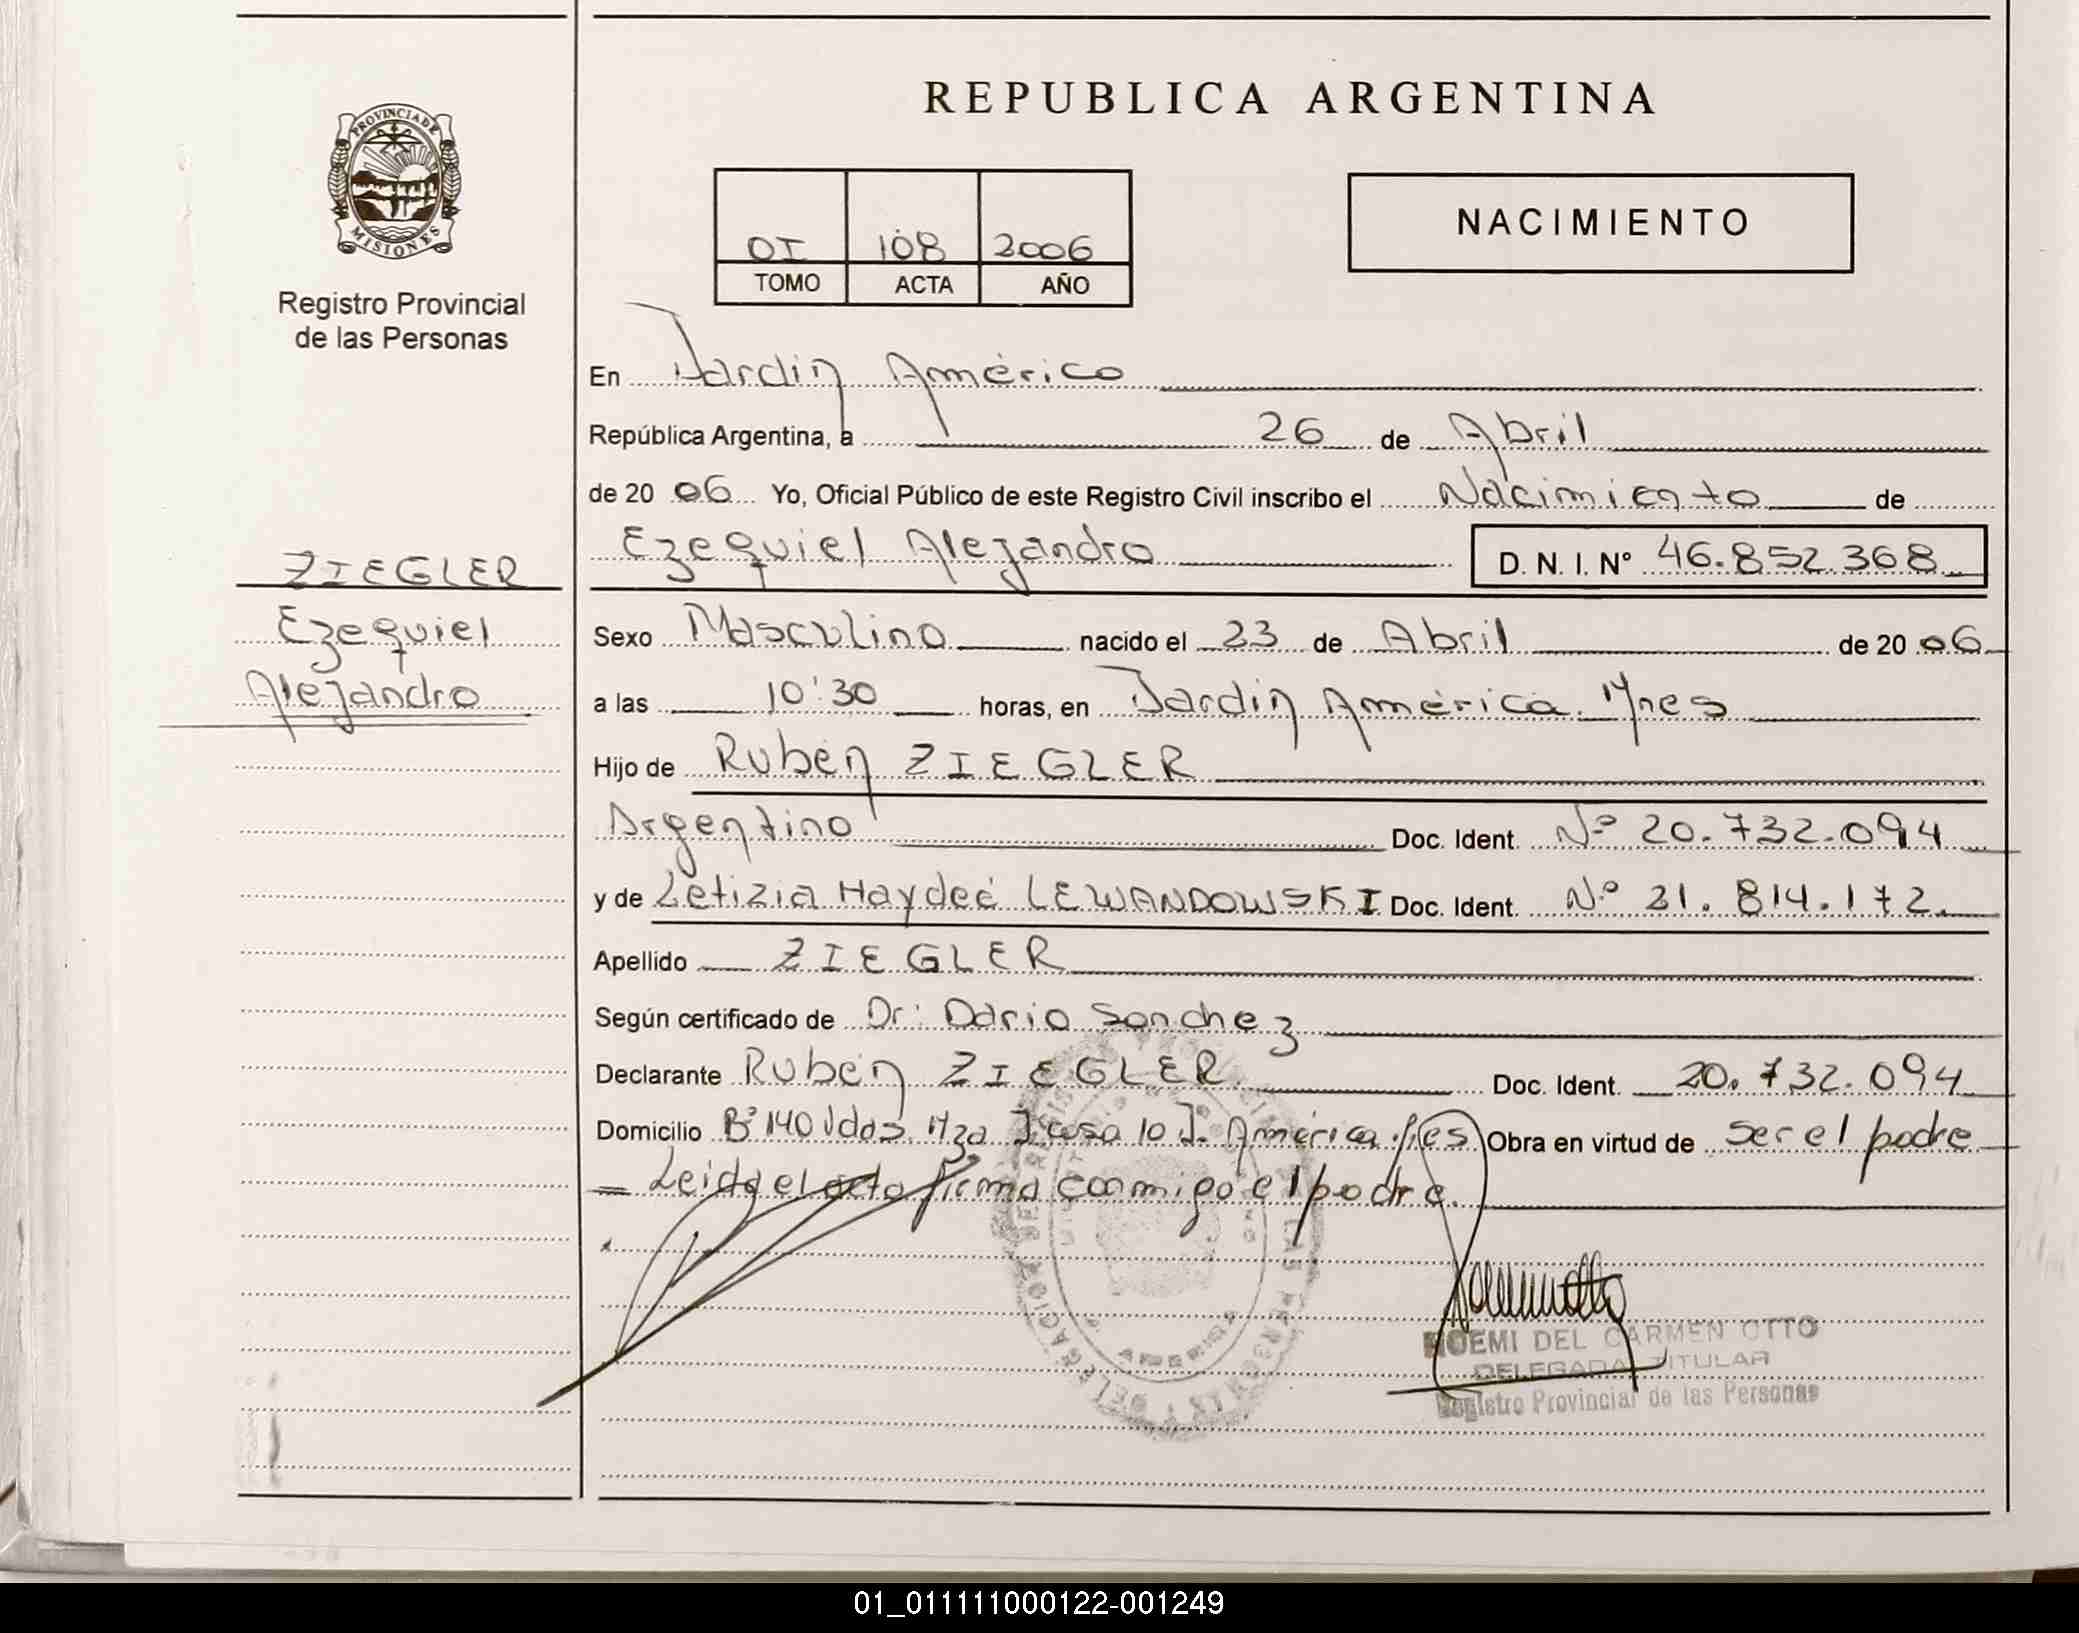 PROVINCIA DE
MISIONES
Registro Provincial
de las Personas
ZIEGLER
Ezequiel
Alejandro
REPUBLICA ARGENTINA
OI 108 2006
TOMO ACTA AÑO
NACIMIENTO
En Jardín América
República Argentina, a 26 de Abril
de 20 06 Yo, Oficial Público de este Registro Civil inscribo el Nacimiento de
Ezequiel Alejandro D. N. I. Nº 46.852.368
Sexo Masculino nacido el 23 de Abril de 20 06
a las 10:30 horas, en Jardín América. Mnes
Hijo de Rubén ZIEGLER
Argentino Doc. Ident. Nº 20.732.094
y de Letizia Haydeé LEWANDOWSKI Doc. Ident. Nº 21.814.172.
Apellido ZIEGLER
Según certificado de Dr: Dario Sanchez
Declarante Rubén ZIEGLER Doc. Ident. 20.732.094
Domicilio Bº 140 Vdas. Mza J casa 10 J. América Obra en virtud de ser el padre
Leida el acta firma conmigo el padre.
NOEMI DEL CARMEN OTTO
DELEGADA TITULAR
Registro Provincial de las Personas
01_011111000122-001249